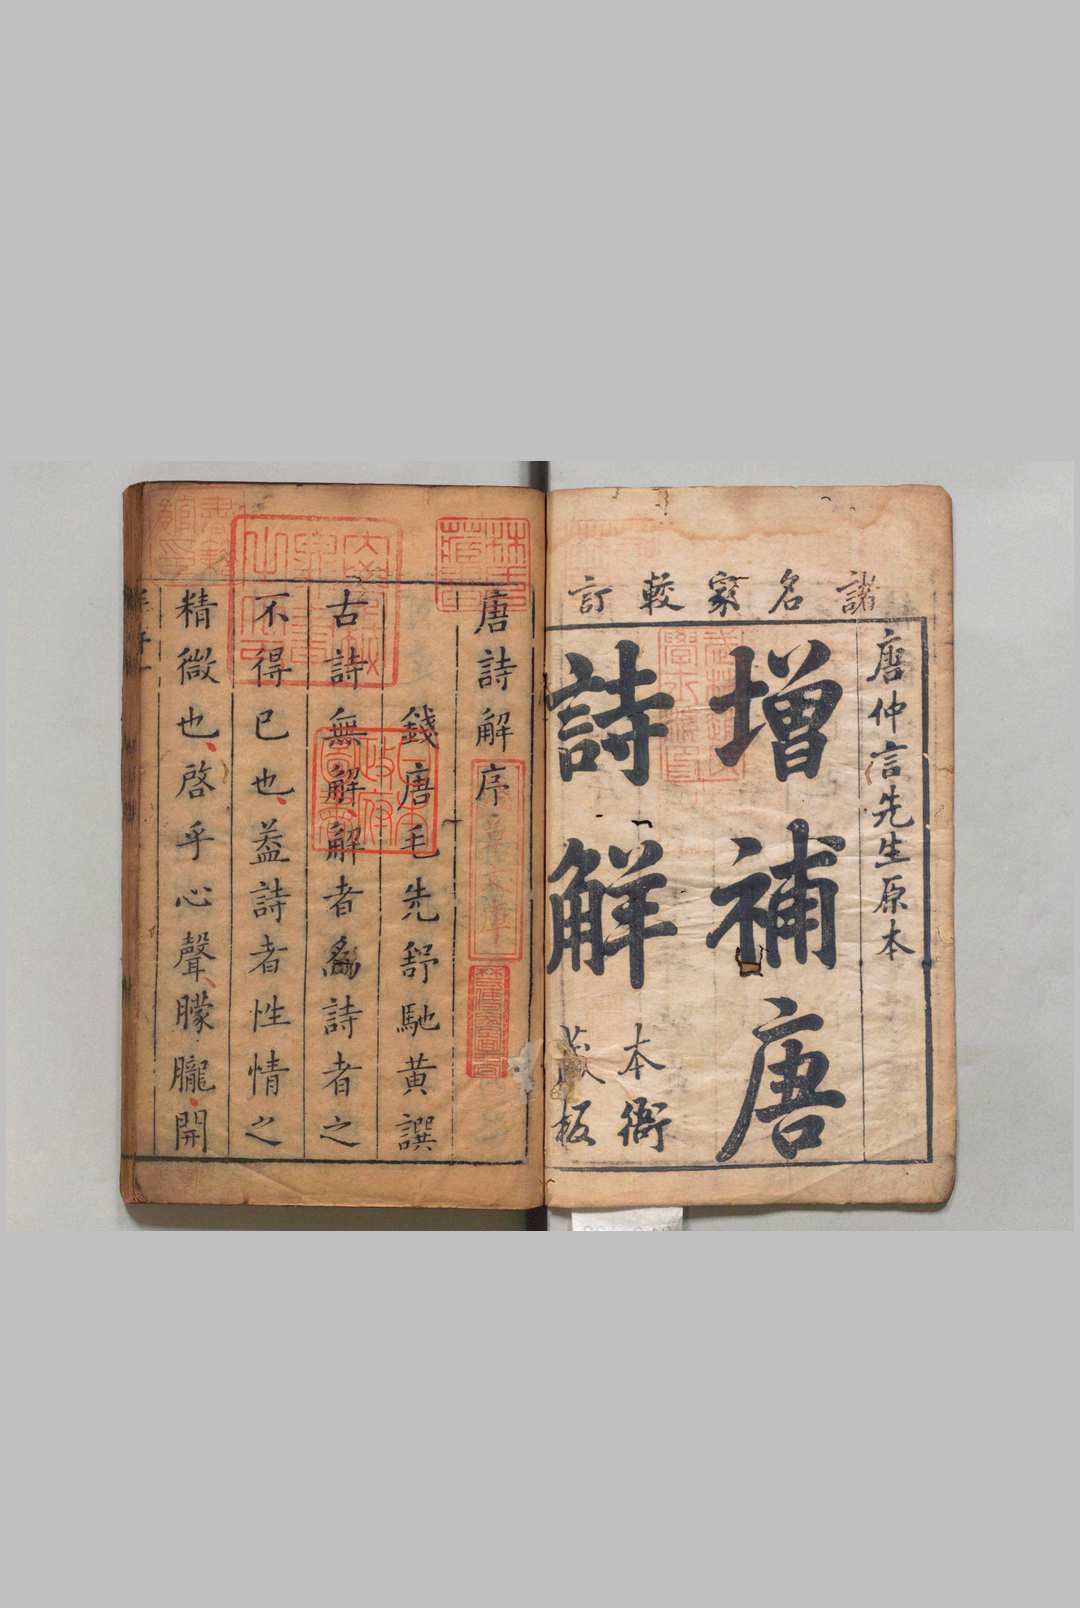 諸名家較訂
唐仲言先生原本
增補唐
詩解
本衙
藏板
唐詩解序
錢唐毛先舒馳黃譔
古詩無解解者為詩者之
不得已也蓋詩者性情之
精微也啓乎心聲朦朧開
林氏
藏書
日本
政府
圖書